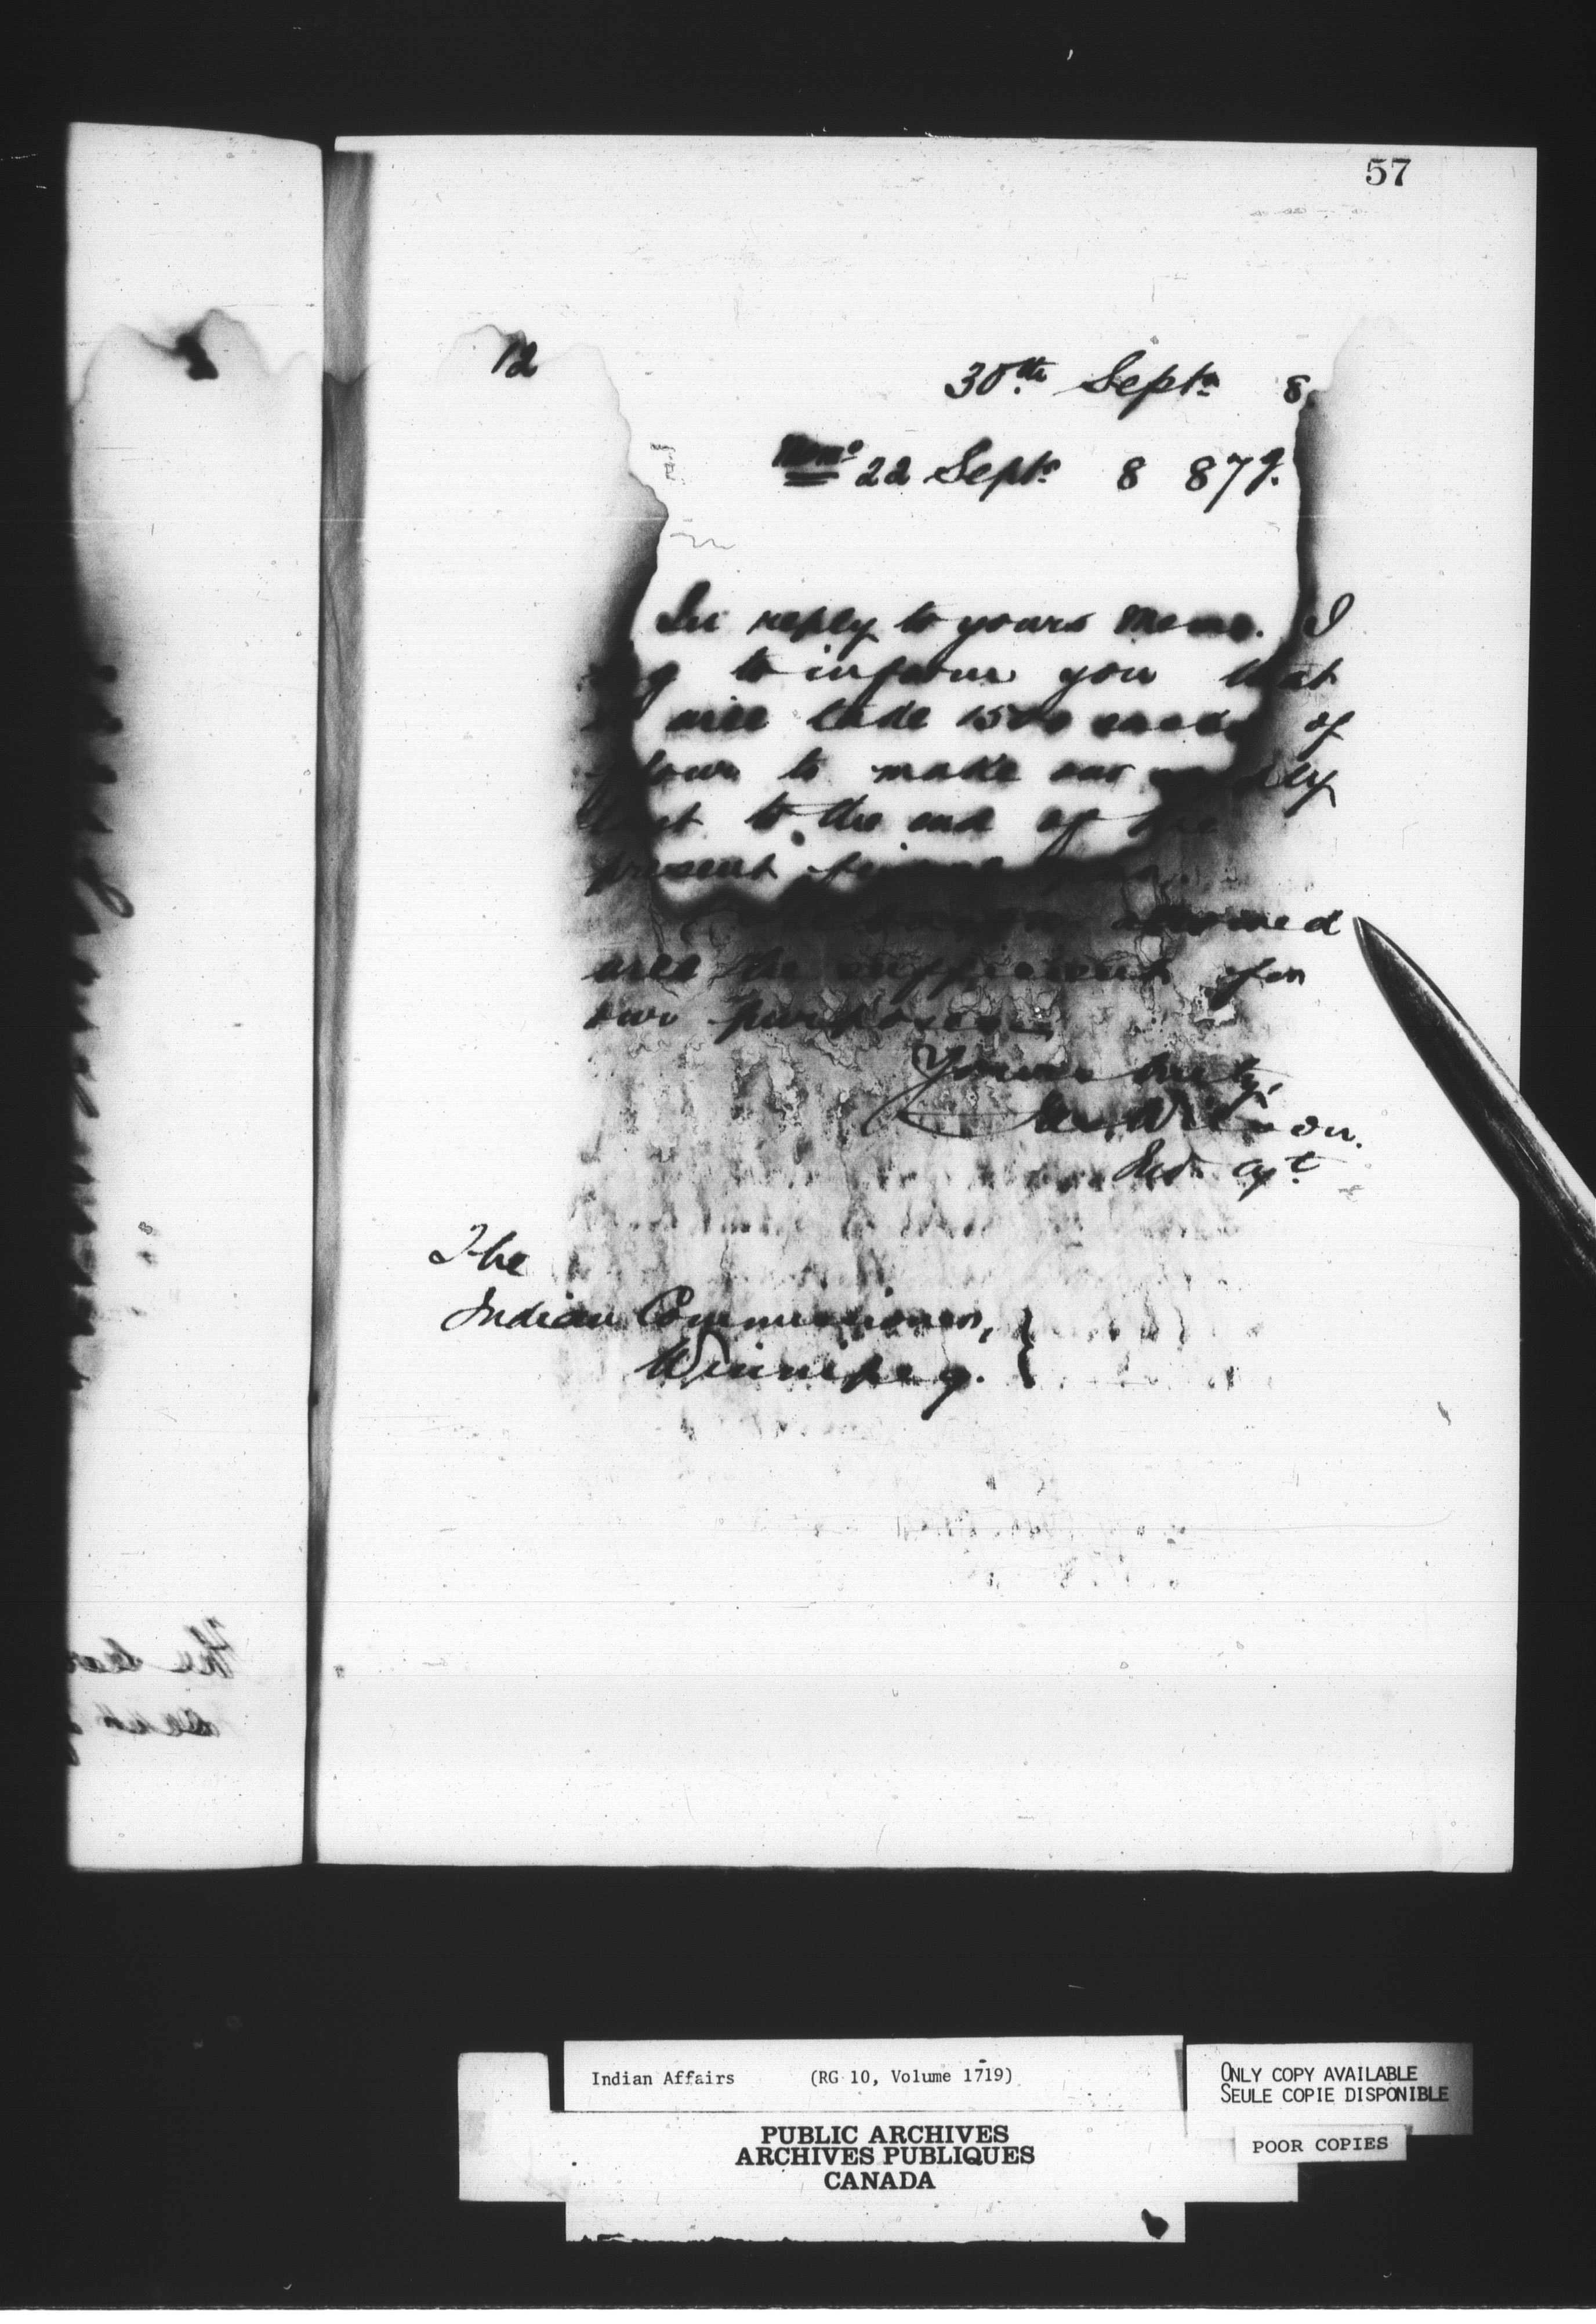 57
12
30th Septr 8
Memo 22 Septr 8 879.
In reply to yours Memo. I
to inform you that
will take 1500 sacks of
flour to make our
last to the end of the
present
allowed
will be sufficient for
our purposes.
Yours truly,
Wilson.
Ind. Agt
The
Indian Commissioner,
Winnipeg.
Indian Affairs (RG 10, Volume 1719)
PUBLIC ARCHIVES
ARCHIVES PUBLIQUES
CANADA
ONLY COPY AVAILABLE
SEULE COPIE DISPONIBLE
POOR COPIES